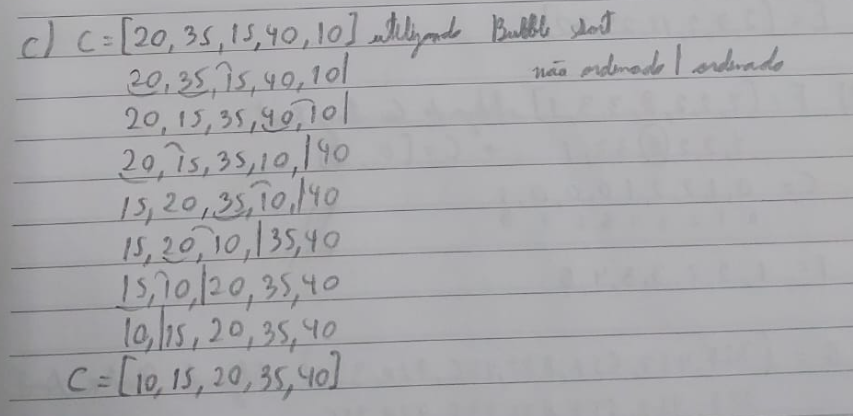 c) C = [20, 35, 15, 40, 10] utilizando Bubble sort
20, 35, 15, 40, 10| não ordenado | ordenado
20, 15, 35, 40, 10|
20, 15, 35, 10, |40
15, 20, 35, 10, |40
15, 20, 10, |35, 40
15, 10, |20, 35, 40
10, |15, 20, 35, 40
C = [10, 15, 20, 35, 40]